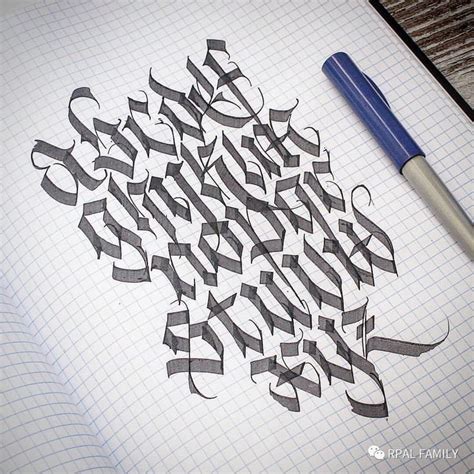 abcdef
ghijklm
nopqr
stuvw
xyz
RPAL FAMILY